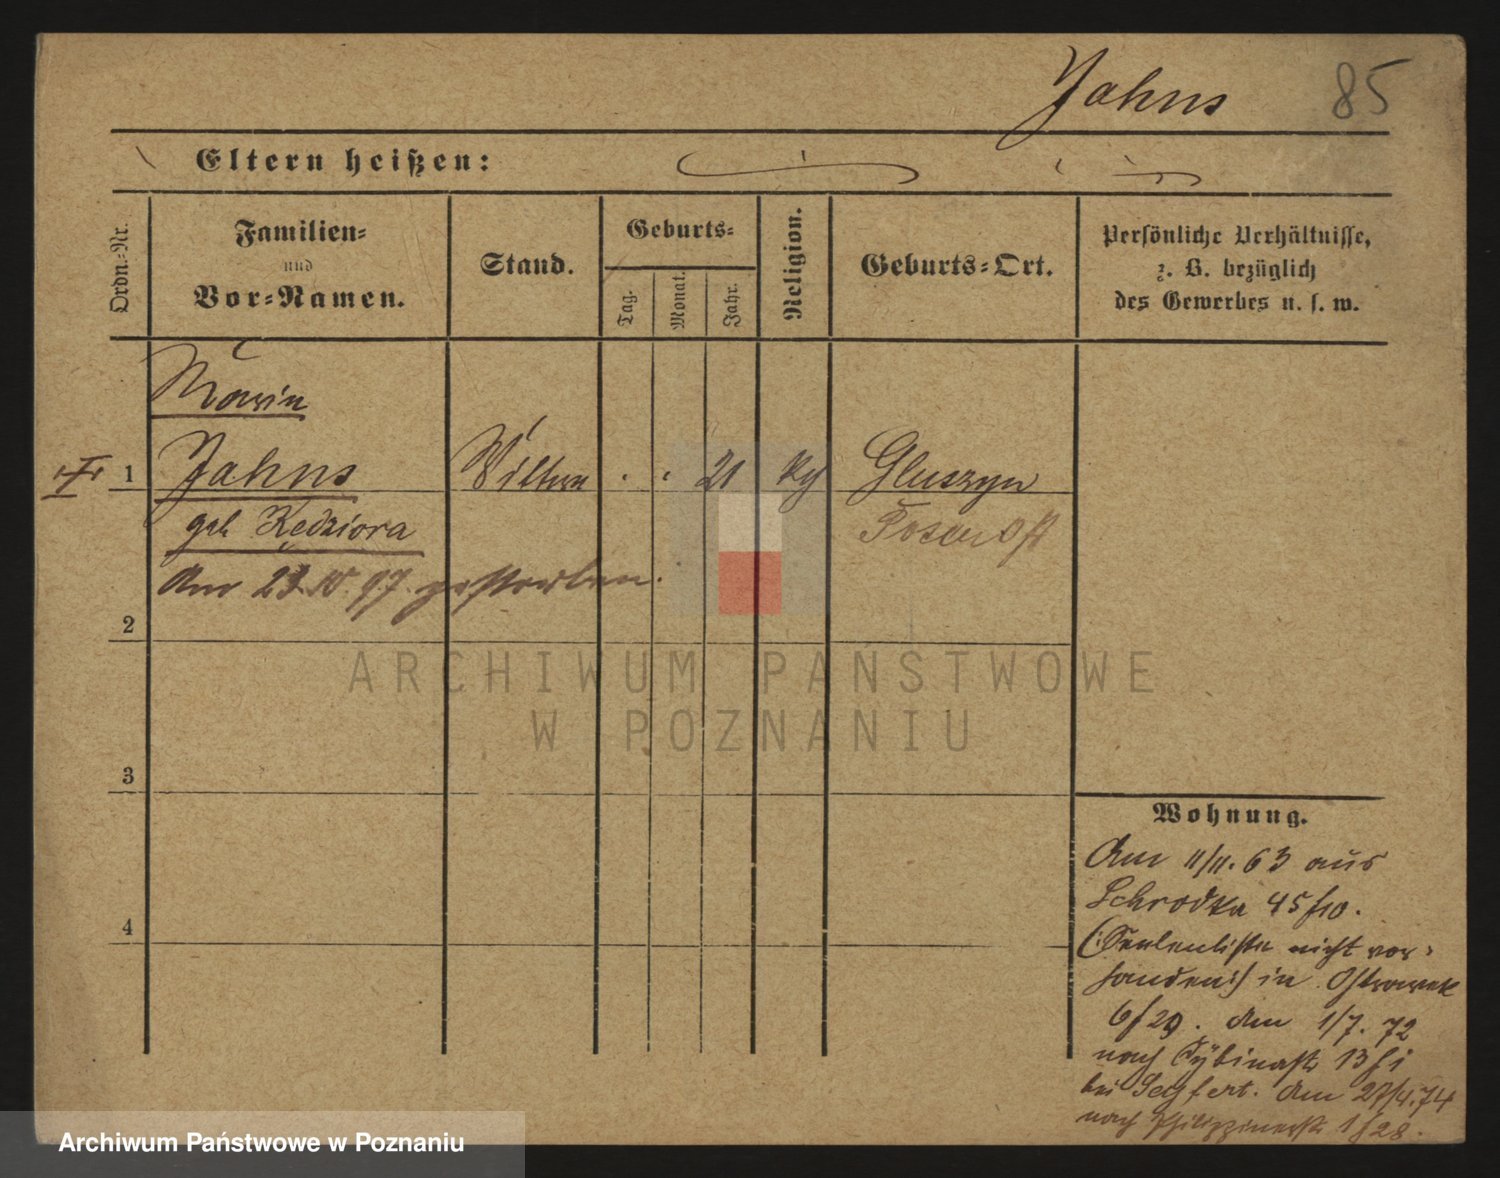 Jahns 85
Eltern heißen:
Ordn.-Nr.
Familien-
und
Vor-Namen.
Stand.
Geburts-
Tag.
Monat.
Jahr.
Religion.
Geburts-Ort.
Persönliche Verhältnisse,
z. B. bezüglich
des Gewerbes u. s. w.
Maria
1 Jahns Wittwe 21 Gluszyn
geb Kędziora Posen Ost
Am 23. IV. 97. gestorben.
2
3
4
Wohnung.
Am 11/11. 63 aus
Schrodka 45 f 10.
(:Seelenliste nicht vor-
handen:) in Ostrowek
6 f 20. Am 1/7. 72
nach 13 f 1
bei Seyfert. Am 27/4. 74
nach Philippinerstr 1 f 28.
ARCHIWUM PAŃSTWOWE
W POZNANIU
Archiwum Państwowe w Poznaniu